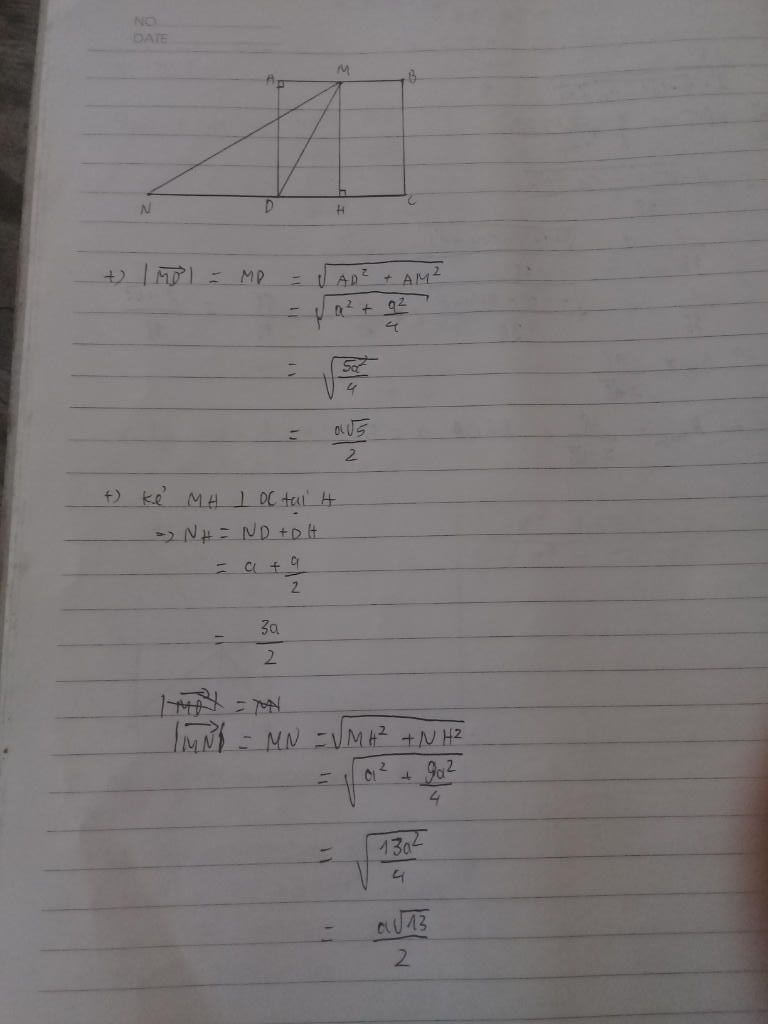 NO
DATE
A M B
N D H C
+) |\overrightarrow{MD}| = MD = \sqrt{AD² + AM²}
= \sqrt{a² + \frac{a²}{4}}
= \sqrt{\frac{5a²}{4}}
= \frac{a\sqrt{5}}{2}
+) Kẻ MH ⊥ DC tại H
=> NH = ND + DH
= a + \frac{a}{2}
= \frac{3a}{2}
|\overrightarrow{MN}| = MN = \sqrt{MH² + NH²}
= \sqrt{a² + \frac{9a²}{4}}
= \sqrt{\frac{13a²}{4}}
= \frac{a\sqrt{13}}{2}